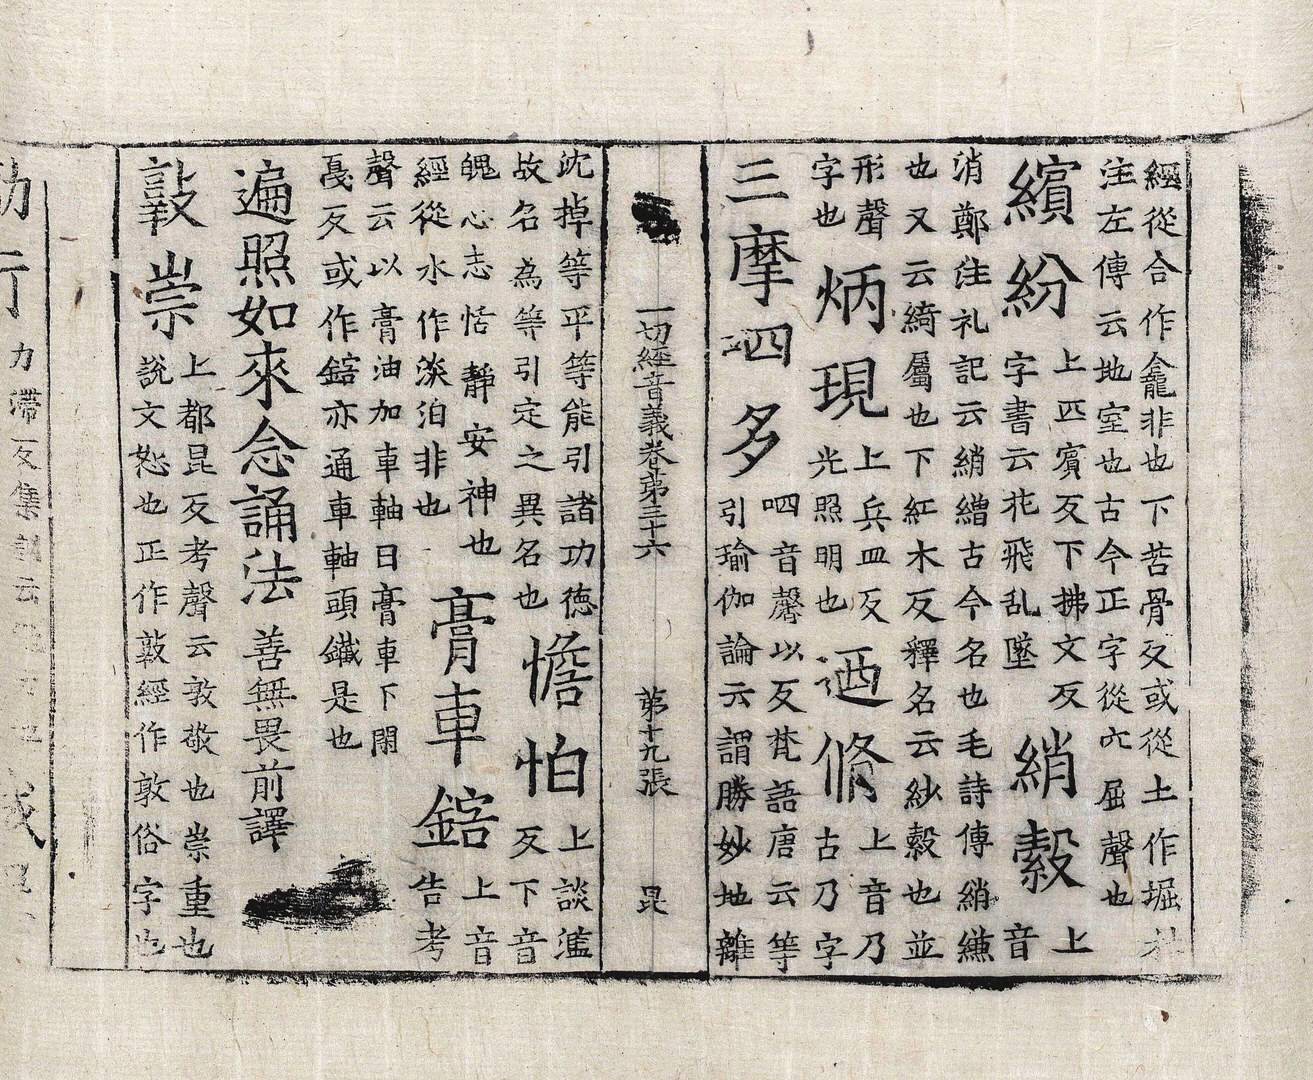 經從合作龕非也下苦骨反或從土作堀杜
注左傳云地室也古今正字從穴屈聲也
繽紛 上匹賓反下拂文反
字書云花飛乱墜
綃縠 上
音
消鄭注礼記云綃繒古今名也毛詩傳綃縑
也又云綺屬也下紅木反釋名云紗縠也並
形聲
字也
炳現 上兵皿反
光照明也
迺脩 上音乃
古乃字
三摩呬多 呬音馨以反梵語唐云等
引瑜伽論云謂勝妙地離
一切經音義卷第三十六 第十九張 昆
沈掉等平等能引諸功德
故名為等引定之異名也
憺怕 上談濫
反下音
魄心志恬靜安神也
經從水作淡泊非也
膏車鎋 上音
告考
聲云以膏油加車軸曰膏車下閑
戛反或作鎋亦通車軸頭鐵是也
遍照如來念誦法 善無畏前譯
敦崇 上都昆反考聲云敦敬也崇重也
說文惄也正作敦經作敦俗字也